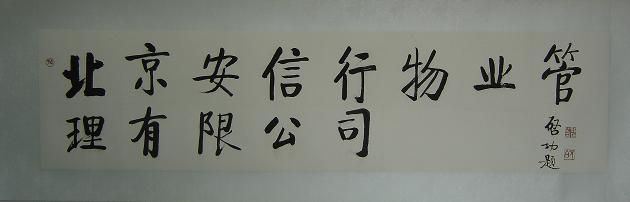 北京安信行物业管
理有限公司
启功题